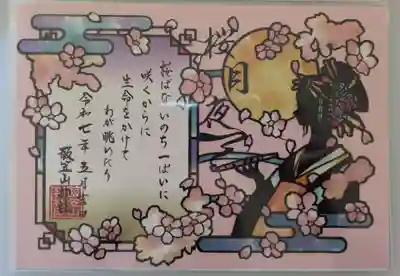 桜月夜
桜ばないのち一ぱいに
咲くからに
生命をかけて
わが眺めたり
令和七年五月